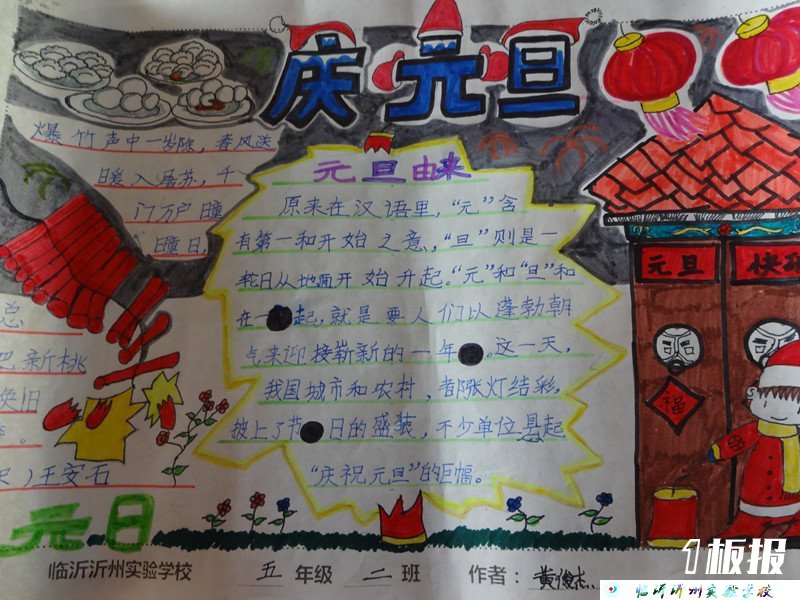 庆元旦
爆竹声中一岁除,春风送
暖入屠苏,千
门万户瞳
瞳日,
总
把新桃
换旧
。
)王安石
元日
元旦由来
原来在汉语里,“元”含
有第一和开始之意,“旦”则是一
轮日从地面开始升起。“元”和“旦”和
在一起,就是要人们以蓬勃朝
气来迎接崭新的一年。这一天,
我国城市和农村,都张灯结彩,
披上了节日的盛装,不少单位悬起
“庆祝元旦”的巨幅。
元旦
快
福
临沂沂州实验学校 五年级 二班 作者:黄俊杰
1板报
临沂沂州实验学校